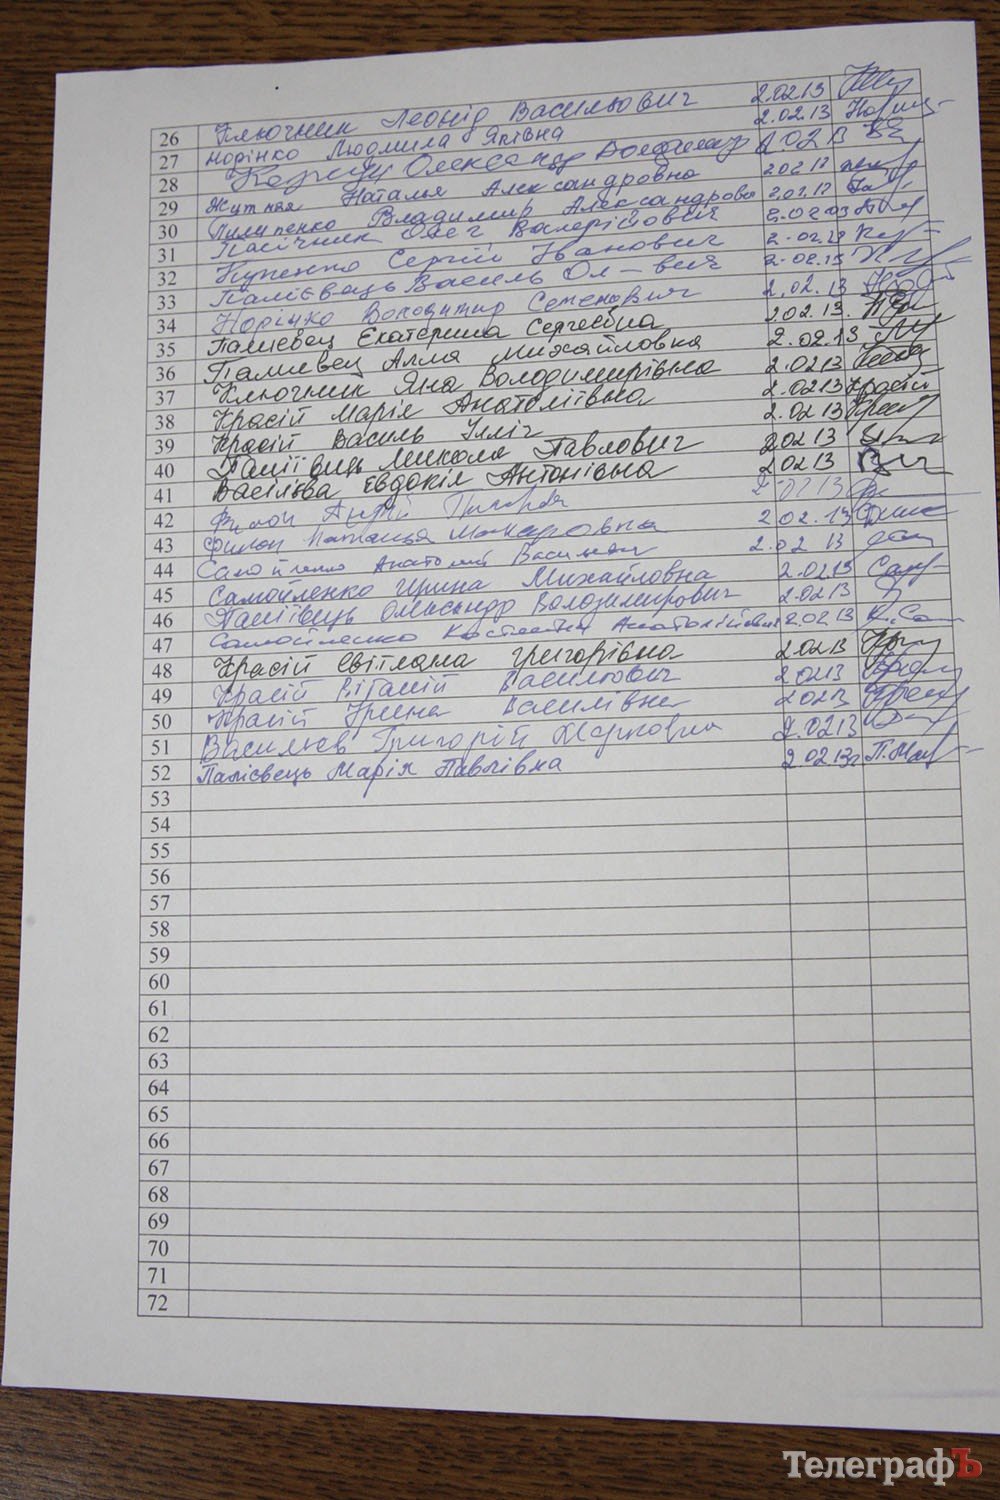 26 Ключник Леонід Васильович 2.02.13
27 Норінко Людмила Яківна 2.02.13
28 Олександр 2.02.13
29 Житняя Наталья Александровна 2.02.13
30 Пилипенко Владимир Александрович 2.02.13
31 Пасічник Олег Валерійович 2.02.13
32 Купенко Сергій Іванович 2.02.13
33 Палієвець Василь Ол-вич 2.02.13
34 Норінко Володимир Семенович 2.02.13
35 Палиевец Екатерина Сергеевна 2.02.13.
36 Палиевец Алла Михайловна 2.02.13
37 Ключник Яна Володимирівна 2.02.13
38 Красій Марія Анатоліївна 2.0213 Красій
39 Красій Василь Ілліч 2.02.13
40 Микола Павлович 20213
41 Васілєва Євдокія Антонівна 20213
42 Андрій
43 Наталья Макаровна 2 02.13
44 Самойленко Анатолий Васильевич 2.02 13
45 Самойленко Ирина Михайловна 2.0213
46 Паліївець Олександр Володимирович 2.0213
47 Самойленко Костянтин Анатолійович 2.02.13
48 Красій Світлана Григорівна 20213
49 Красій Віталій Васильович 20213
50 Красій Ирина Василівна 20213
51 Васильєв Григорій Маркович 2.0213
52 Палієвець Марія Павлівна 2.02.13г
53
54
55
56
57
58
59
60
61
62
63
64
65
66
67
68
69
70
71
72
ТелеграфЪ